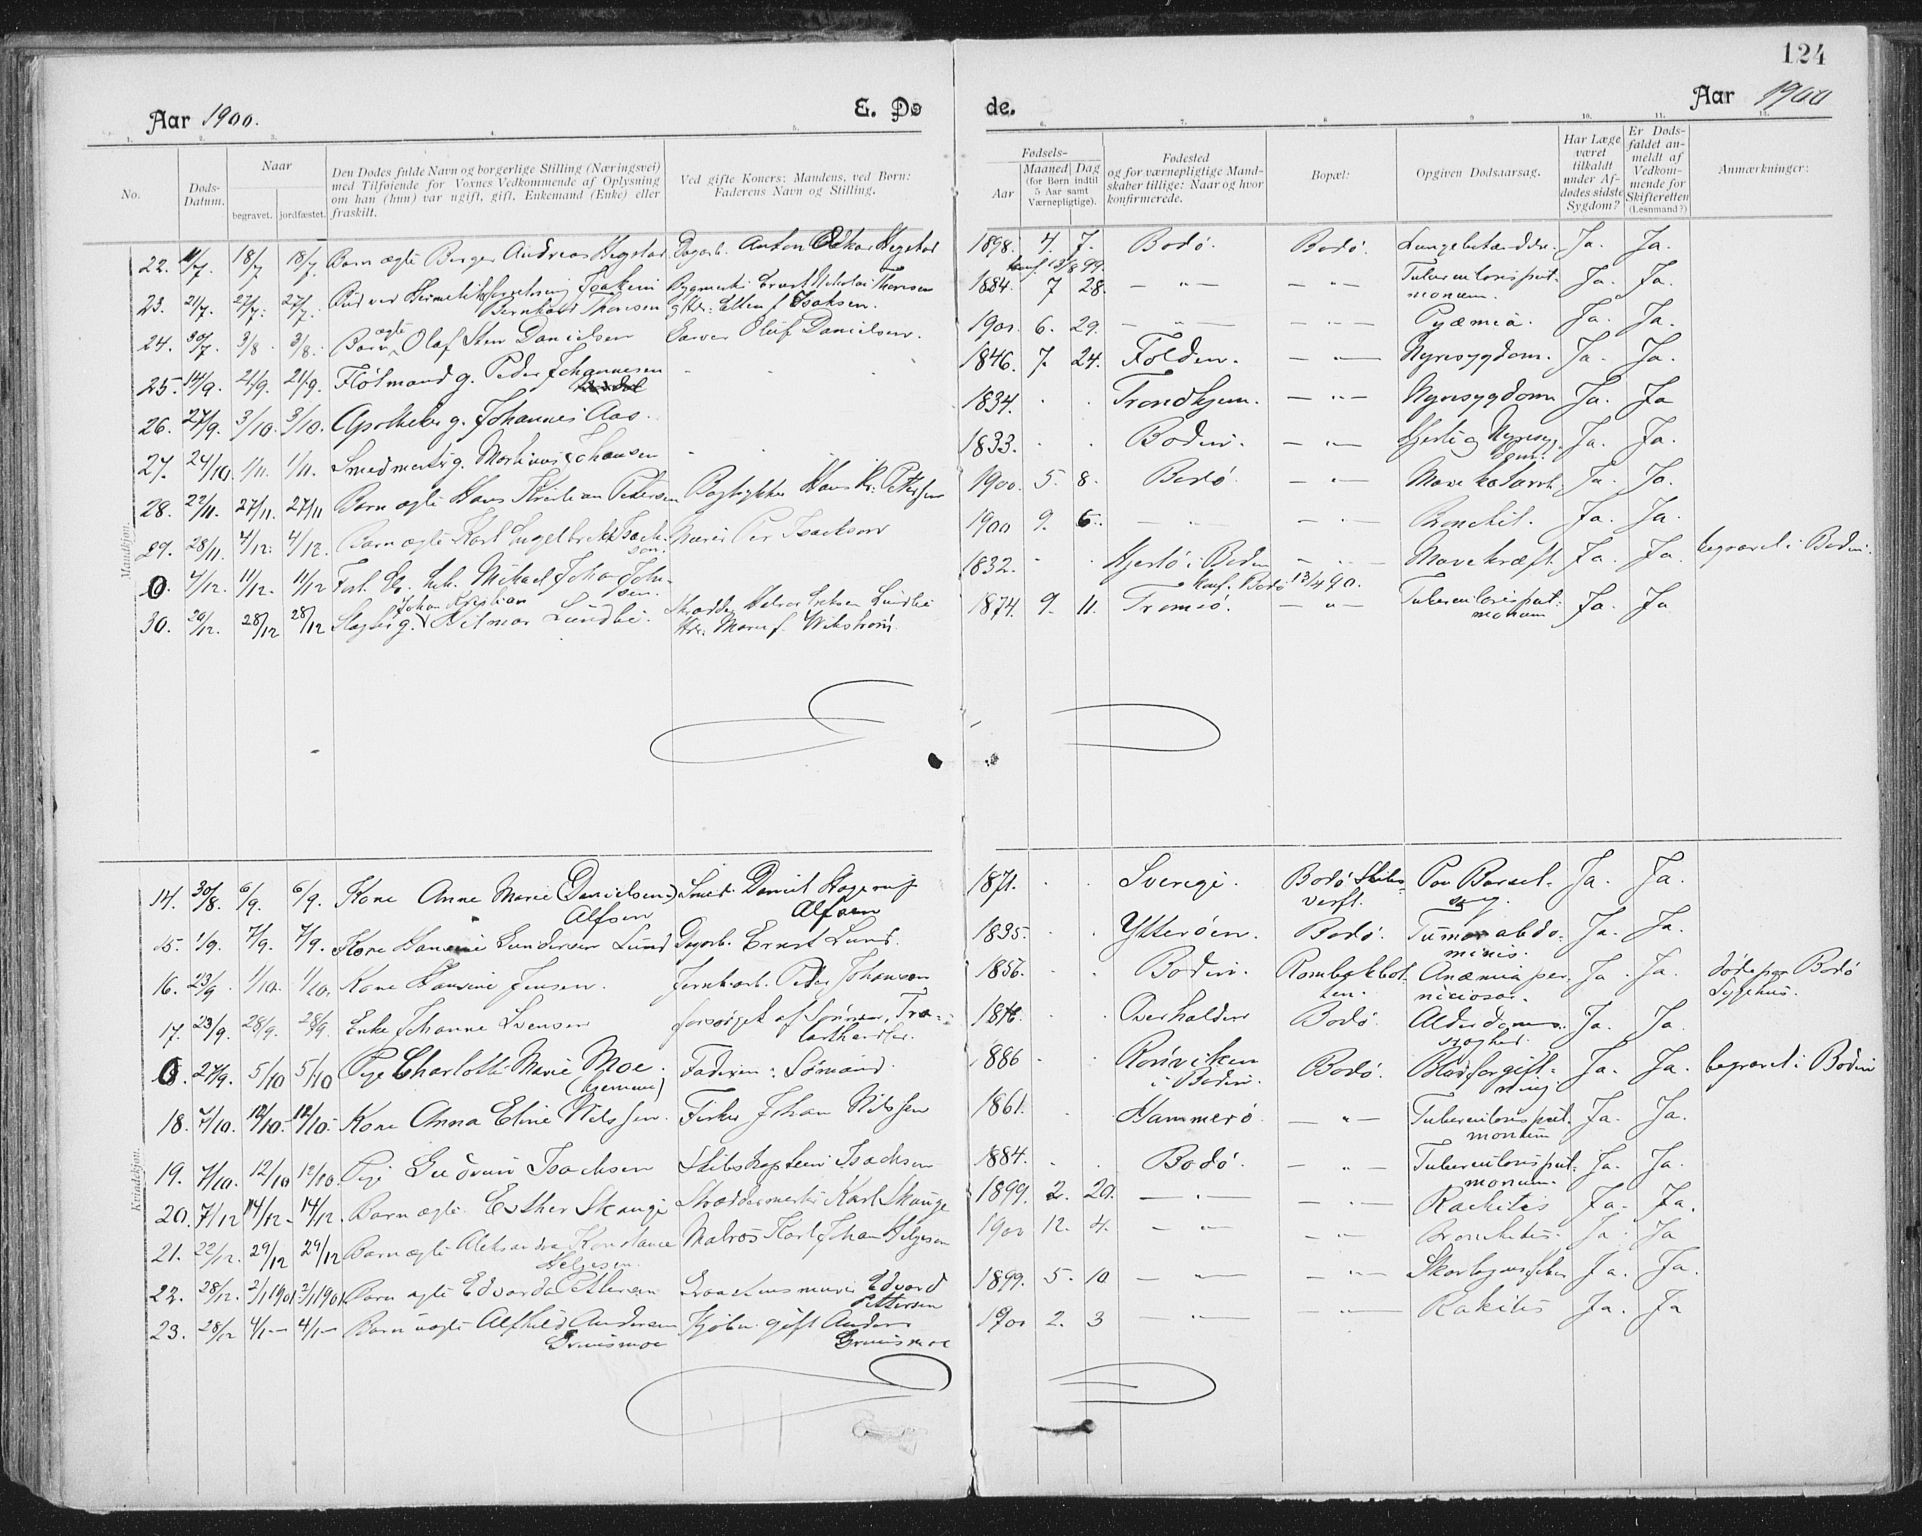 124
Aar 1900. E. Dø de. Aar 1900
1. 2. 3. 4. 5. 6. 7. 8. 9. 10. 11. 12.
No. Døds-Datum. Naar begravet. jordfæstet. Den Dødes fulde Navn og borgerlige Stilling (Næringsvei) med Tilføiende for Voxnes Vedkommende af Oplysning om han (hun) var ugift, gift, Enkemand (Enke) eller fraskilt. Ved gifte Koner: Mandens, ved Børn: Faderens Navn og Stilling. Fødsels- Aar Maaned Dag (for Børn indtil 5 Aar samt Værnepligtige). Fødested og for værnepligtige Mandskaber tillige: Naar og hvor konfirmerede. Bopæl: Opgiven Dødsaarsag. Har Læge været tilkaldt under Afdødes sidste Sygdom? Er Dødsfaldet anmeldt af Vedkommende for Skifteretten (Lesnmand?) Anmærkninger:
Mandkjøn.
22. 11/7. 18/7 18/7. Barn ægte Birger Andreas Hegstad Dagarb. Anton Oskar Hegstad 1898. 4. 7. Bodø. Bodø. Lungebetændelse. Ja. Ja.
23. 21/7. 27/7. 27/7. Bud ved Hermetikforretning Joakim Bernhard Thoresen Bygmester Ernst Nikolai Thoresen Ellen f. Isaksen. 1884. 7 28. konf. 13/8 99. — " — — " — Tuberculosis pulmonum. Ja. Ja.
24. 30/7. 3/8. 3/8. Barn ægte Olaf Sten Danielsen Garver Oluf Danielsen. 1900. 6. 29. — " — — " — Pyæmia. Ja. Ja.
25. 14/9. 21/9. 21/9. g. Peder Johannesen 1846. 7. 24. Folden. — " — Nyresygdom. Ja. Ja.
26. 27/9. 3/10. 3/10. Apotheker g. Johannes Aas. 1834. Trondhjem. — " — Nyresygdom Ja. Ja
27. 24/10. 1/11. 1/11. Smedmester g. Martinus Johansen 1833. Bodin. — " — Hjerte og Nyresygdom. Ja. Ja.
28. 22/11. 27/11. 27/11 Barn ægte Hans Kristian Petersen Bogtrykker Hans Kr. Petersen 1900. 5. 8. Bodø. — " — Mavekatarrh. Ja. Ja.
29. 28/11. 4/12. 4/12. Barn ægte Karl Engelbrekt Isaksen Murer Per Isaksen 1900 9. 6. — " — — " — Bronchit. Ja. Ja.
0. 7/12. 11/12. 11/12 Mikael Johan Johnsen. 1832. Hjertø i Bodin — " — Mavekræft. Ja. Ja. begravet i Bodin.
30. 20/12. 28/12 28/12 g. Johan Kristian Hilmar Lundbi. Skrædder Eriksen Lundbi Maren f. Wikstrøm. 1874. 9. 11. konf. Bodø 13/4 90. Tromsø. — " — Tuberculosis pulmonum Ja. Ja
Kvindekjøn.
14. 30/8. 6/9. 6/9. Kone Anne Marie (Danielsen) Alfsen Smed Daniel Hagerup Alfsen 1871. Sverige. Bodø Skibsverft. Barselseng. Ja. Ja.
15. 1/9. 7/9. 7/9. Kone Gundersen Lund Dagarb. Ernst Lund. 1835. Ytterøen. Bodø. Tumor abdominis. Ja. Ja.
16. 23/9. 1/10. 1/10. Kone Hansine Jensen. Jernbarb. Peder Johansen 1856. Bodin. Rombakbotten. Anæmia perniciosa. Ja. Ja. døde paa Bodø Sygehus.
17. 23/9. 28/9. 28/9. Enke Johanne Svensen forsørget af Sønnen, Tralasthandler. Overhalden Bodø. Alderdomssvaghed. Ja. Ja.
0. 27/9. 5/10 5/10 Pige Charlotte Marie Moe. (hjemme) Faderen: Sømand. 1886 Rønviken i Bodin. Bodø. Blodforgiftning Ja. Ja. begravet i Bodin
18. 7/10. 12/10. 12/10. Kone Anna Eline Nilssen. Fisker Johan Nilssen 1861. Hammerø. — " — Tuberculosis pulmonum Ja. Ja.
19. 7/10. 12/10 12/10. Pige Gudrun Isachsen Skibskaptein Isachsen 1884. Bodø. — " — Tuberculosis pulmonum. Ja. Ja.
20. 7/12 14/12. 14/12. Barn ægte Esther Skauge Skræddermester Karl Skauge 1899. 2. 20. — " — — " — Rachitis Ja. Ja.
21. 22/12. 29/12 29/12 Barn ægte Aleksandra Konstance Helgesen. Matros Karl Johan Helgesen 1900 12. 4. — " — — " — Bronchitis. Ja. Ja
22. 28/12. 2/1 1901 2/1 1901. Barn ægte Edvarda Pettersen Edvard Pettersen 1899. 5. 10 — " — — " — Skarlagensfeber Ja. Ja.
23. 28/12 4/1 — 4/1 — Barn uægte Alfhild Andersen Grunsmoe gift Anders Grunsmoe 1900 2. 3 — " — — " — Rakitis Ja. Ja